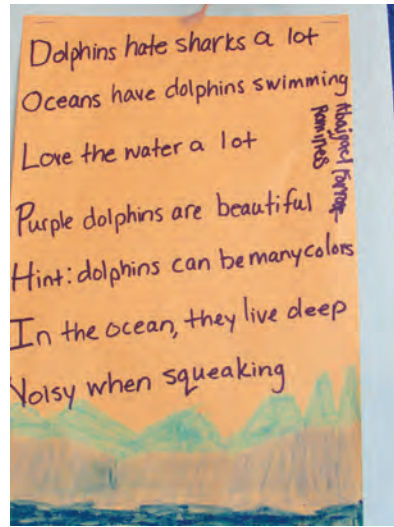 Dolphins hate sharks a lot
Oceans have dolphins swimming
Love the water a lot
Purple dolphins are beautiful
Hint: dolphins can be many colors
In the ocean, they live deep
Noisy when squeaking